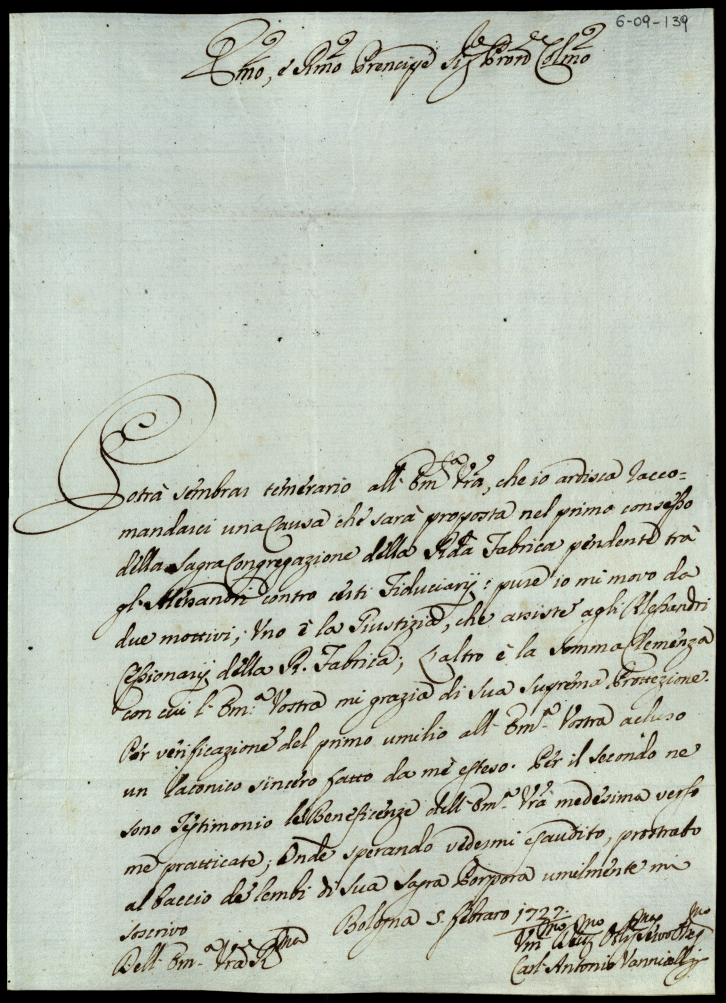 6-09-139
Emo, e Rmo Prencipe Sig.re Prone Colmo
Potrà sembrar temerario all' Em.a Vra, che io ardisca racco=
mandarci una Causa che sarà proposta nel primo consesso
della Sagra Congregazione della Rda Fabrica pendente trà
gl' Alessandri contro certi Fiduciarij: pure io mi movo da
due mottivi, Uno è la Giustizia, che assiste agli Alessandri
Cessionarij della R. Fabrica; L'altro è la somma Clemenza
con cui l' Em.a Vostra mi grazia di sua suprema Protezione.
Per verificazione del primo umilio all' Em.a Vostra acluso
un laconico sincero fatto da mè esteso. Per il secondo ne
sono Testimonio le Beneficenze dell' Em.a Vra medesima verso
me pratticate; Onde sperando vedermi esaudito, prostrato
al baccio de lembi di sua sagra Porpora umilmente mi
soscrivo
Bologna 5. Febraro 1727.
Dell' Em.a Vra Rma
Carl' Antonio Vannicelli